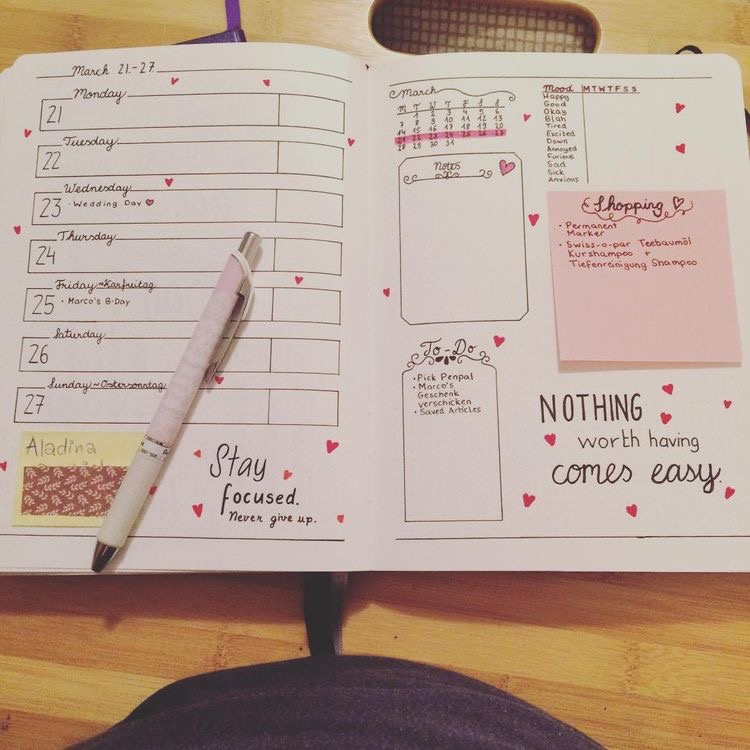 March 21.-27.
Monday
21
Tuesday
22
Wednesday
23 • Wedding Day
Thursday
24
Friday ~ Karfreitag
25 • Marco's B-Day
Saturday
26
Sunday ~ Ostersonntag
27
Aladina
Stay
focused.
Never give up.
March
M T W T F S S
1 2 3 4 5 6
7 8 9 10 11 12 13
14 15 16 17 18 19 20
21 22 23 24 25 26 27
28 29 30 31
Notes
To-Do
• Pick Penpal
• Marco's
Geschenk
verschicken
• Saved Articles
Mood M T W T F S S
Happy
Good
Okay
Blah
Tired
Excited
Down
Annoyed
Furious
Sad
Sick
Anxious
Shopping
• Permanent
Marker
• Swiss-o-par Teebaumöl
Kurshampoo +
Tiefenreinigung Shampoo
NOTHING
worth having
comes easy.